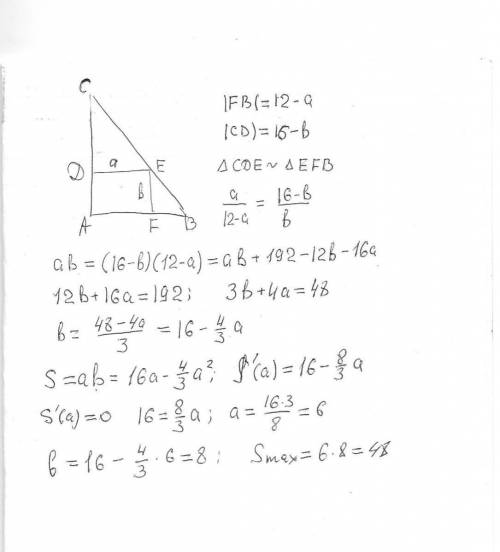 C
D a E
b
A F B
|FB|=12-a
|CD|=16-b
△CDE ~ △EFB
a/(12-a) = (16-b)/b
ab = (16-b)(12-a) = ab + 192 - 12b - 16a
12b + 16a = 192; 3b + 4a = 48
b = (48-4a)/3 = 16 - 4/3 a
S = ab = 16a - 4/3 a²; S'(a) = 16 - 8/3 a
S'(a) = 0 16 = 8/3 a; a = 16·3/8 = 6
b = 16 - 4/3 · 6 = 8; Smax = 6·8 = 48